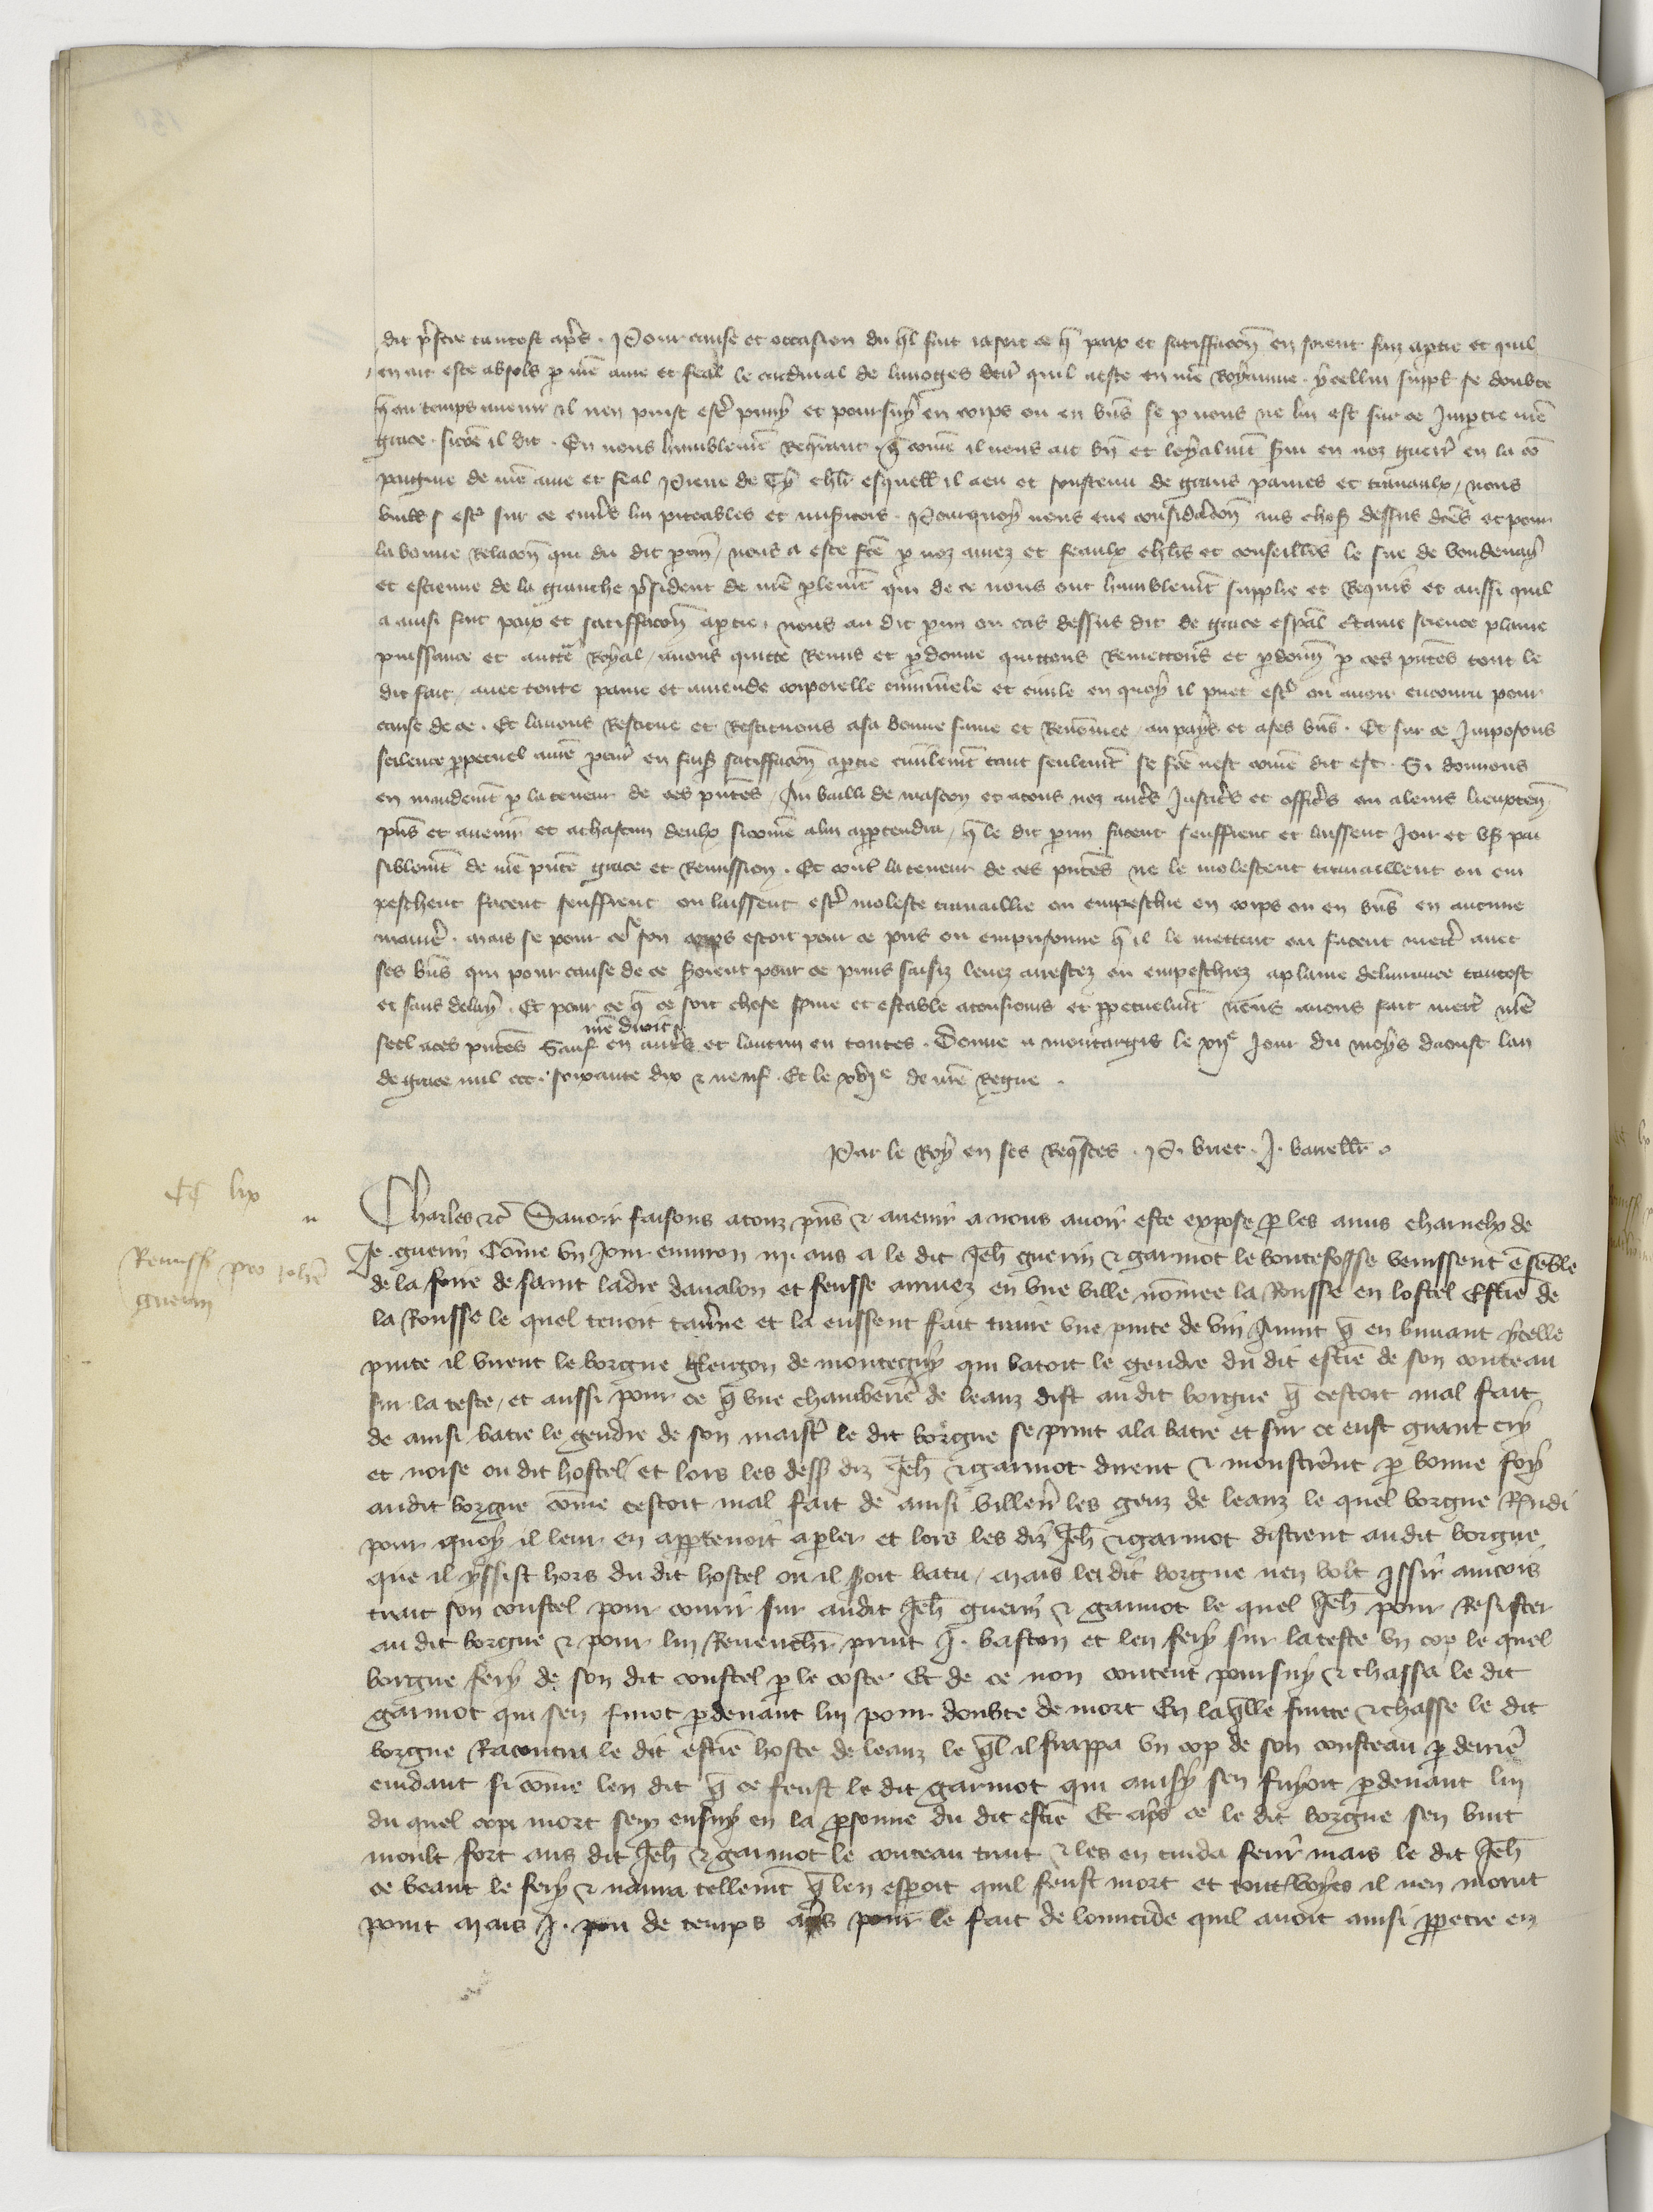 dit p̃stre tantost apr̃s . Pour cause et occasion du q̃l fait ia soit ce q̃ paix et satiffacc̃on en soient faiz a p̱tie et quil
en ait este absols p̱ nr̃e ame et feal le cardinal de limoges quil a este en nr̃e Royaume . ycellui suppl̃ se doubte
q̃ ou temps auenir il nen puist estr̃ puny et poursuy en corps ou en biẽs se p̱ nous ne lui est sur ce Imp̱tie nr̃e
grace . sicõe il dit . En nous humblemẽt Req̃rant . q̃ cõme il nous ait biẽ et loyalmẽt s̃ui en noz guerr̃ en la cõ
paignie de nr̃e ame et feal Pierre de chlr̃ esquell̃ il a eu et soustenu de grans paines et trauaulx / nous
estr̃ sur ce enuers lui piteables et mis̃icors . Pourquoy nous eue consid̃acõn aus choses dessus dc̃es et pour
la bonne Relacõn qui du dit p̱rin / nous a este fc̃e p̱ noz amez et feaulx chlr̃s et conseillr̃s le sire de vendenay
et estienne de la granche p̃sident de nr̃e p̱lemẽt qui de ce nous ont humblemẽt supplie et Requis et aussi quil
a ainsi fait paix et satiffacõn a p̱tie . nous au dit p̱rin ou cas dessus dit de grace esp̃al c̃taine science plaine
puissance et auctẽ Royal / auons quitte Remis et p̱donne quittons Remettons et p̱donñ p̱ ces pñtes tout le
dit fait / auec toute paine et amende corporelle criminele et ciuile en quoy il puet estr̃ ou auoir encouru pour
cause de ce . Et lauons Restitue et Restituons a sa bonne fame et Renõmee au pays et a ses biẽs . Et sur ce Imposons
scilence p̱petuel a nr̃e pcur̃ en faisãt satiffacõn a p̱tie ciuilemẽt tant seulemẽt se fc̃e nest cõme dit est . Si donnons
en mandemẽt p̱ la teneur de ces pñtes / Au bailli de mascon et a touz noz autr̃s Justicr̃s et officr̃s ou a leurs lieuxteñ
pñs et auenir et a chascun deulx sicõme a lui app̱tendra / q̃ le dit p̱rin facent seuffrent et laissent Joir et vs̃ pai
siblemẽt de nr̃e pñte grace et Remission . Et contr̃ la teneur de ces pñtes ne le molestent trauaillent ou em
peschent facent seuffrent ou laissent estr̃ moleste trauaillie ou empeschie en corps ou en biẽs en aucune
manier̃ . mais se pour ce son corps estoit pour ce pris ou emprisonne q̃ il le mettent ou facent mettr̃ auec
ses biẽs qui pour cause de ce s̃oient pour ce prins saisiz leuez arrestez ou empeschiez a plaine deliurance tantost
et sans delay . Et pour ce q̃ ce soit chose ferme et estable a tousiours et p̱petuelmẽt nous auons fait mettr̃ nr̃e
seel a ces pñtes Sauf nr̃e droit en autr̃s et lautrui en toutes . Donne a montargis le xij͏ͤ Jour du moys daoust lan
de grace mil ccc . soixante dix ⁊ neuf . Et le xvjͤ de nr̃e Regne .
Par le Roy en ses Req̃stes . P. biuer . J. banellr̃ .
CC lix
Remissi͂ pro Joh̃e
guerin
Charles ⁊c̃ Sauoir faisons a touz pñs ⁊ auenir a nous auoir este expose p̱ les amis charnelx de
Je. guerin Cõme vn Jour enuiron iij . ans a le dit Jeh̃ guerin ⁊ garmot le boutefosse venissent ẽsẽble
de la foire de saint ladre daualon et feusse arriuez en vne ville nõmee la Rousse en lostel Estiẽ de
la Rousse le quel tenoit tau̾ne et la eussent fait traire vne pinte de vin Auint q̃ en buuant ycelle
pinte il virent le borgne de monteguy qui batoit le gendre du dit estiẽ de son couteau
sur la teste / et aussi pour ce q̃ vne chamberier̃ de leanz dist au dit borgne q̃ cestoit mal fait
de ainsi batre le gendre de son maistr̃ le dit borgne se print a la batre et sur ce eust grant cry
et noise ou dit hostel et lors les dess̃ diz Jeh̃ ⁊ garmot dirent ⁊ monstrer̃nt p̱ bonne foy
au dit borgne cõme cestoit mal fait de ainsi villeñ les genz de leanz le quel borgne Rñdi
pour quoy il leur en app̱tenoit a p̱ler et lors les diz Jeh̃ ⁊ garmot distrent au dit borgne
que il yssist hors du dit hostel ou il s̃oit batu / mais le dit borgne nen volt yssir aincois
trait son coustel pour courir sur au dit Jeh̃ guerin ⁊ garmot le quel Jeh̃ pour Resister
au dit borgne ⁊ pour lui Reuench̃r print J . baston et len fery sur la teste vn cop le quel
borgne fery de son dit coustel p̱ le coste Et de ce non content poursuy ⁊ chassa le dit
garmot qui sen fuiot p̱ deuant lui pour doubte de mort En la q̃lle fuitte ⁊ chasse le dit
borgne Racontra le dit estiẽ hoste de leanz le q̃l il frappa vn cop de son cousteau p̱ derrier̃
cuidant si cõme len dit q̃ ce feust le dit garmot qui ainsy sen fuyoit p̱ deuant lui
du quel cop mort sen ensuy en la p̱sonne du dit estiẽ Et apr̃s ce le dit borgne sen vint
moult fort aus dit Jeh̃ ⁊ garmot le couteau trait ⁊ les en cuida ferir mais le dit Jeh̃
ce veant le fery ⁊ naura tellemẽt q̃ len esp̱oit quil feust mort et toutesvoyes il nen morut
point mais J . pou de temps apr̃s pour le fait de lomicide quil auoit ainsi p̱petre en